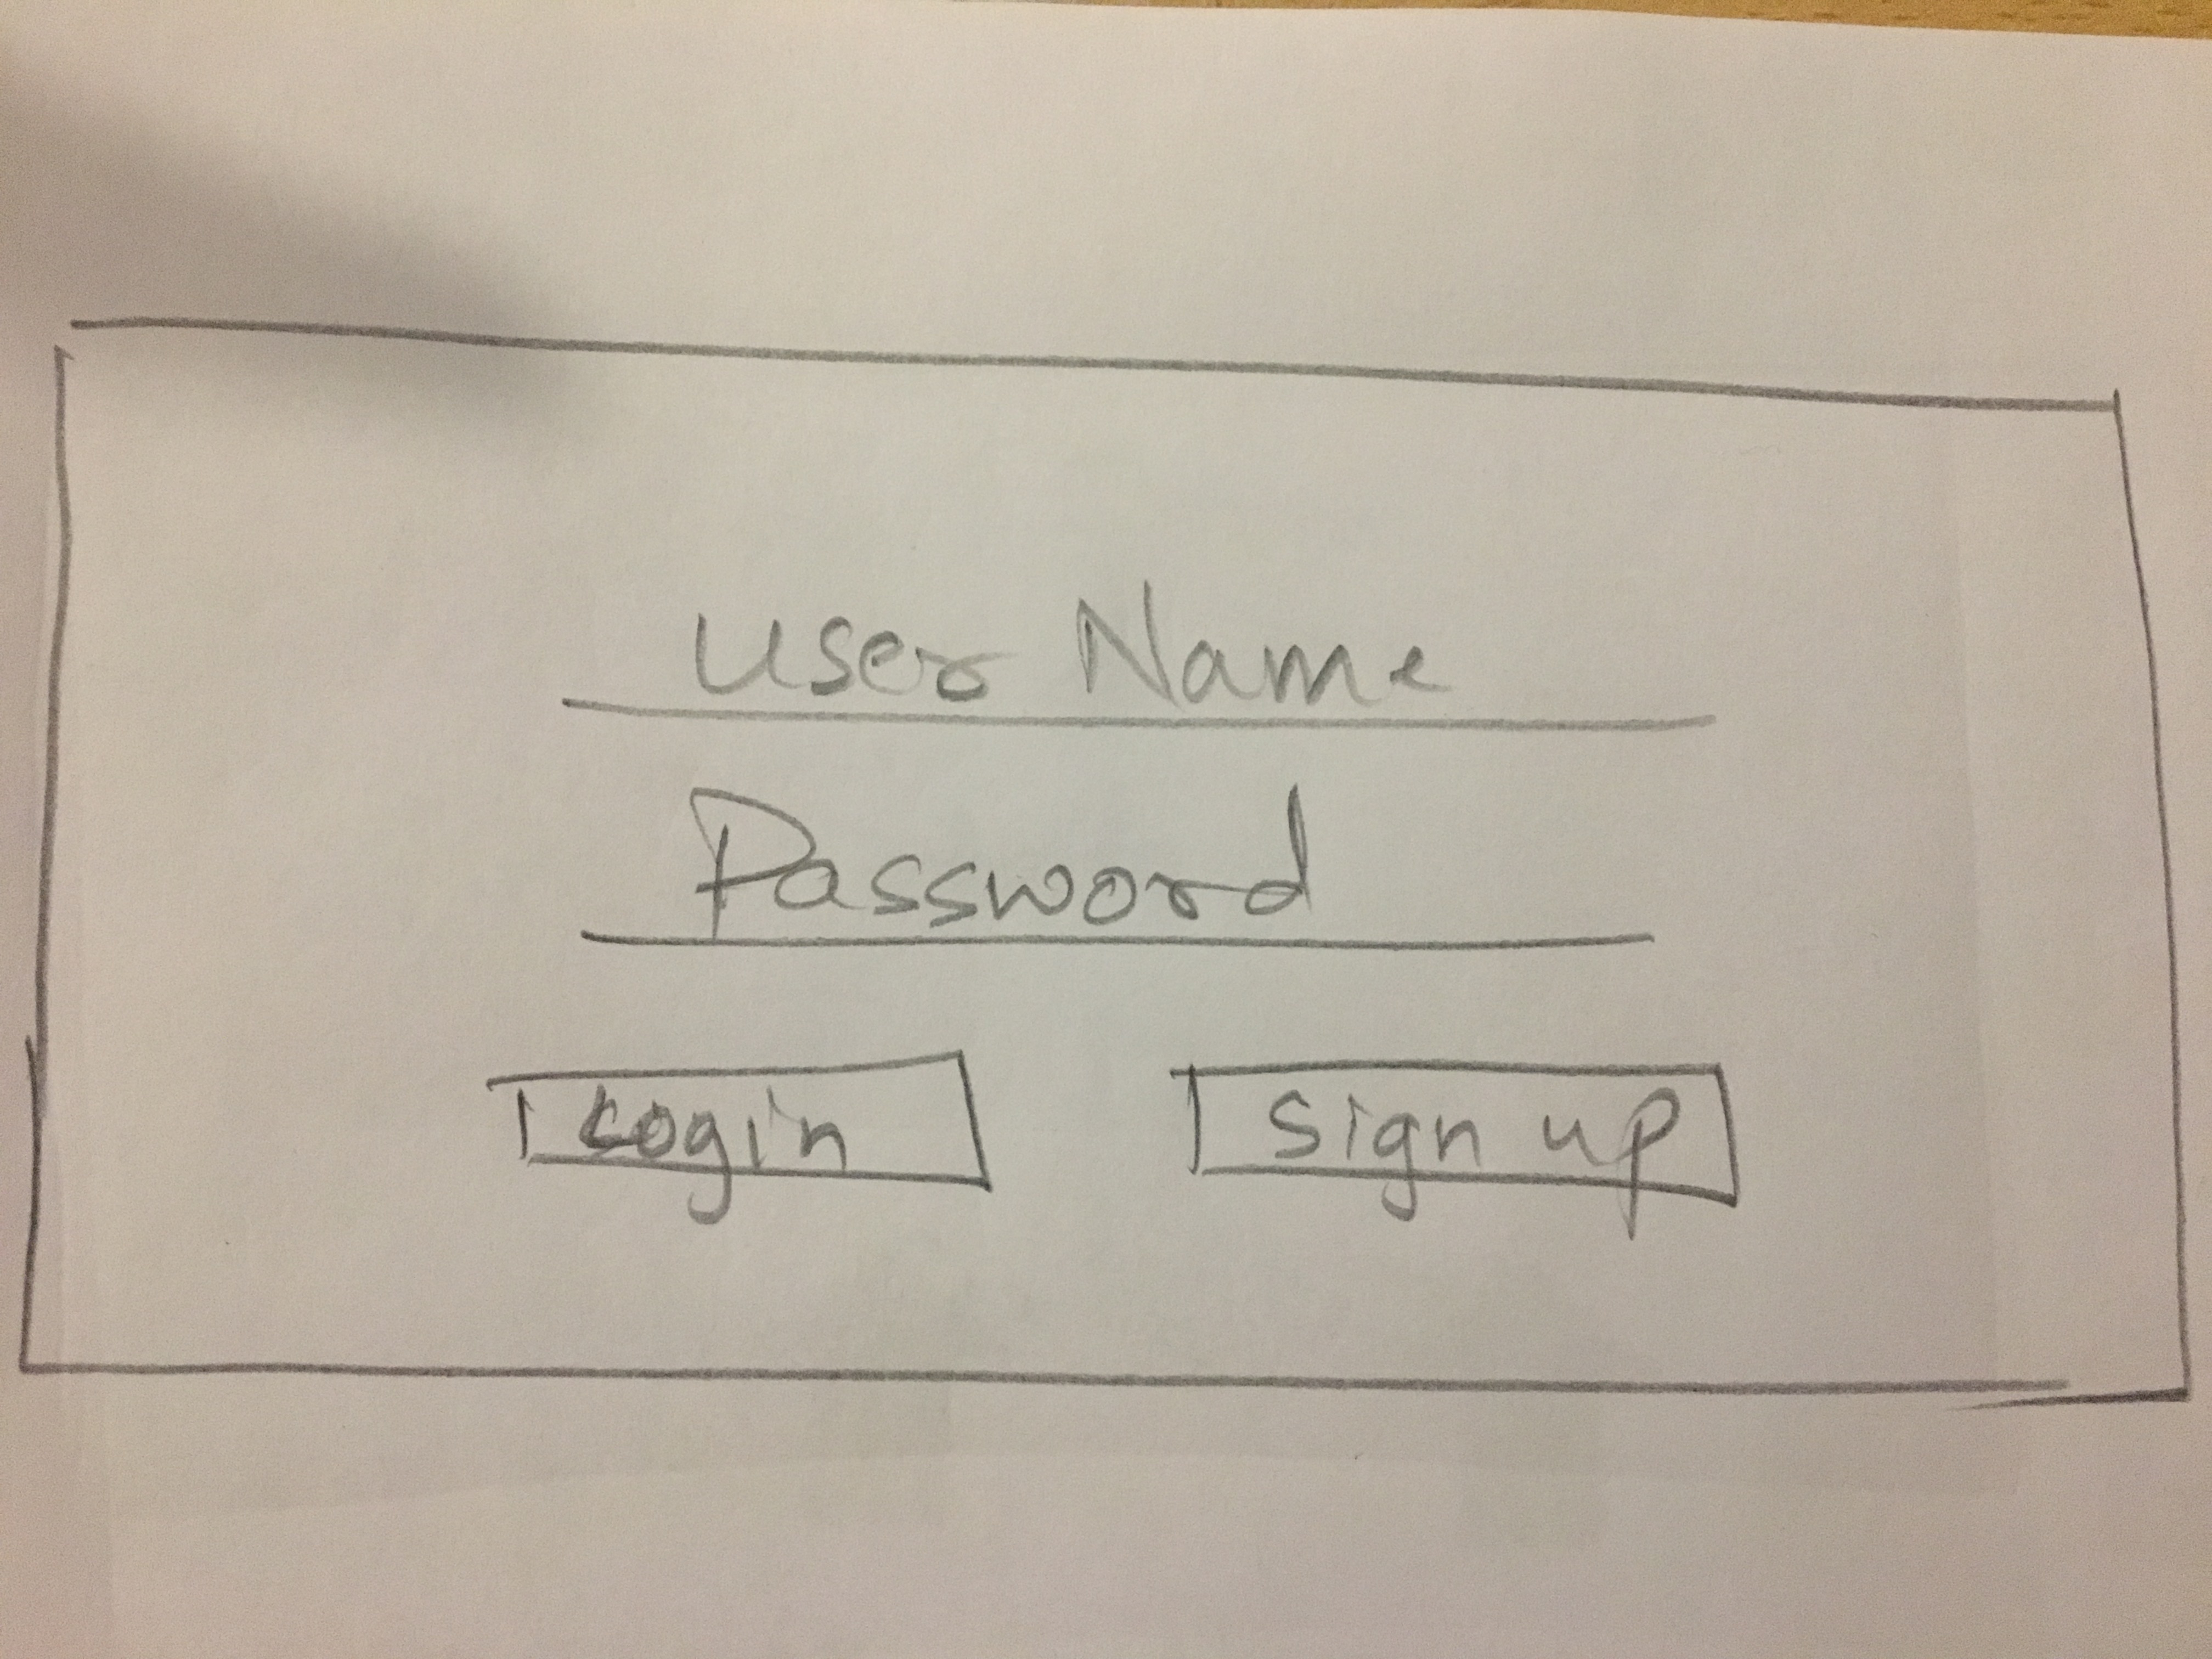 User Name
Password
Login
Sign up